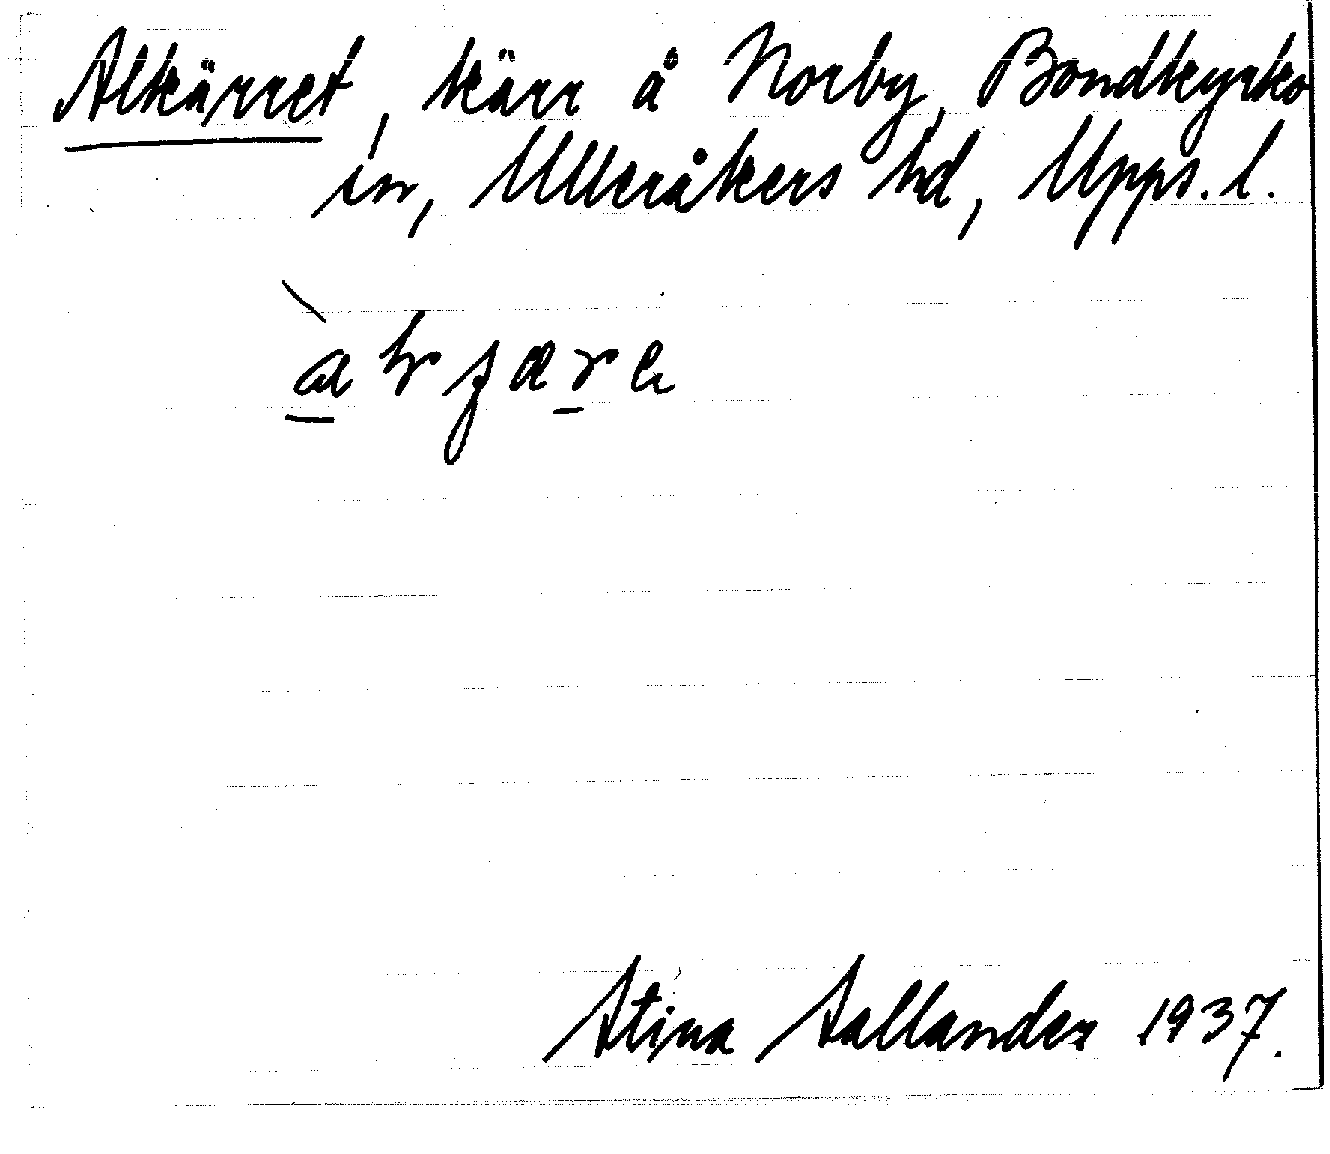 Alkärret, kärr å Norby, Bondkyrko
sn, Ulleråkers hd, Upps. l.
Stina Sallander 1937.